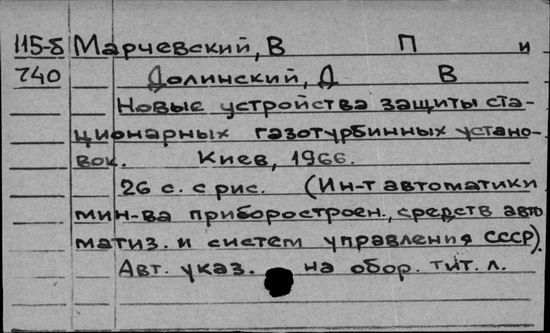 115-б Марчевский, В П и
740 Долинский, Д В
Новые устройства защиты ста-
ционарных газотурбинных устано-
вок. Киев, 1966.
26 с. с рис. (Ин-т автоматики
мин-ва приборостроен., средств авто
матиз. и систем управления СССР).
Авт. указ. на обор. тит. л.